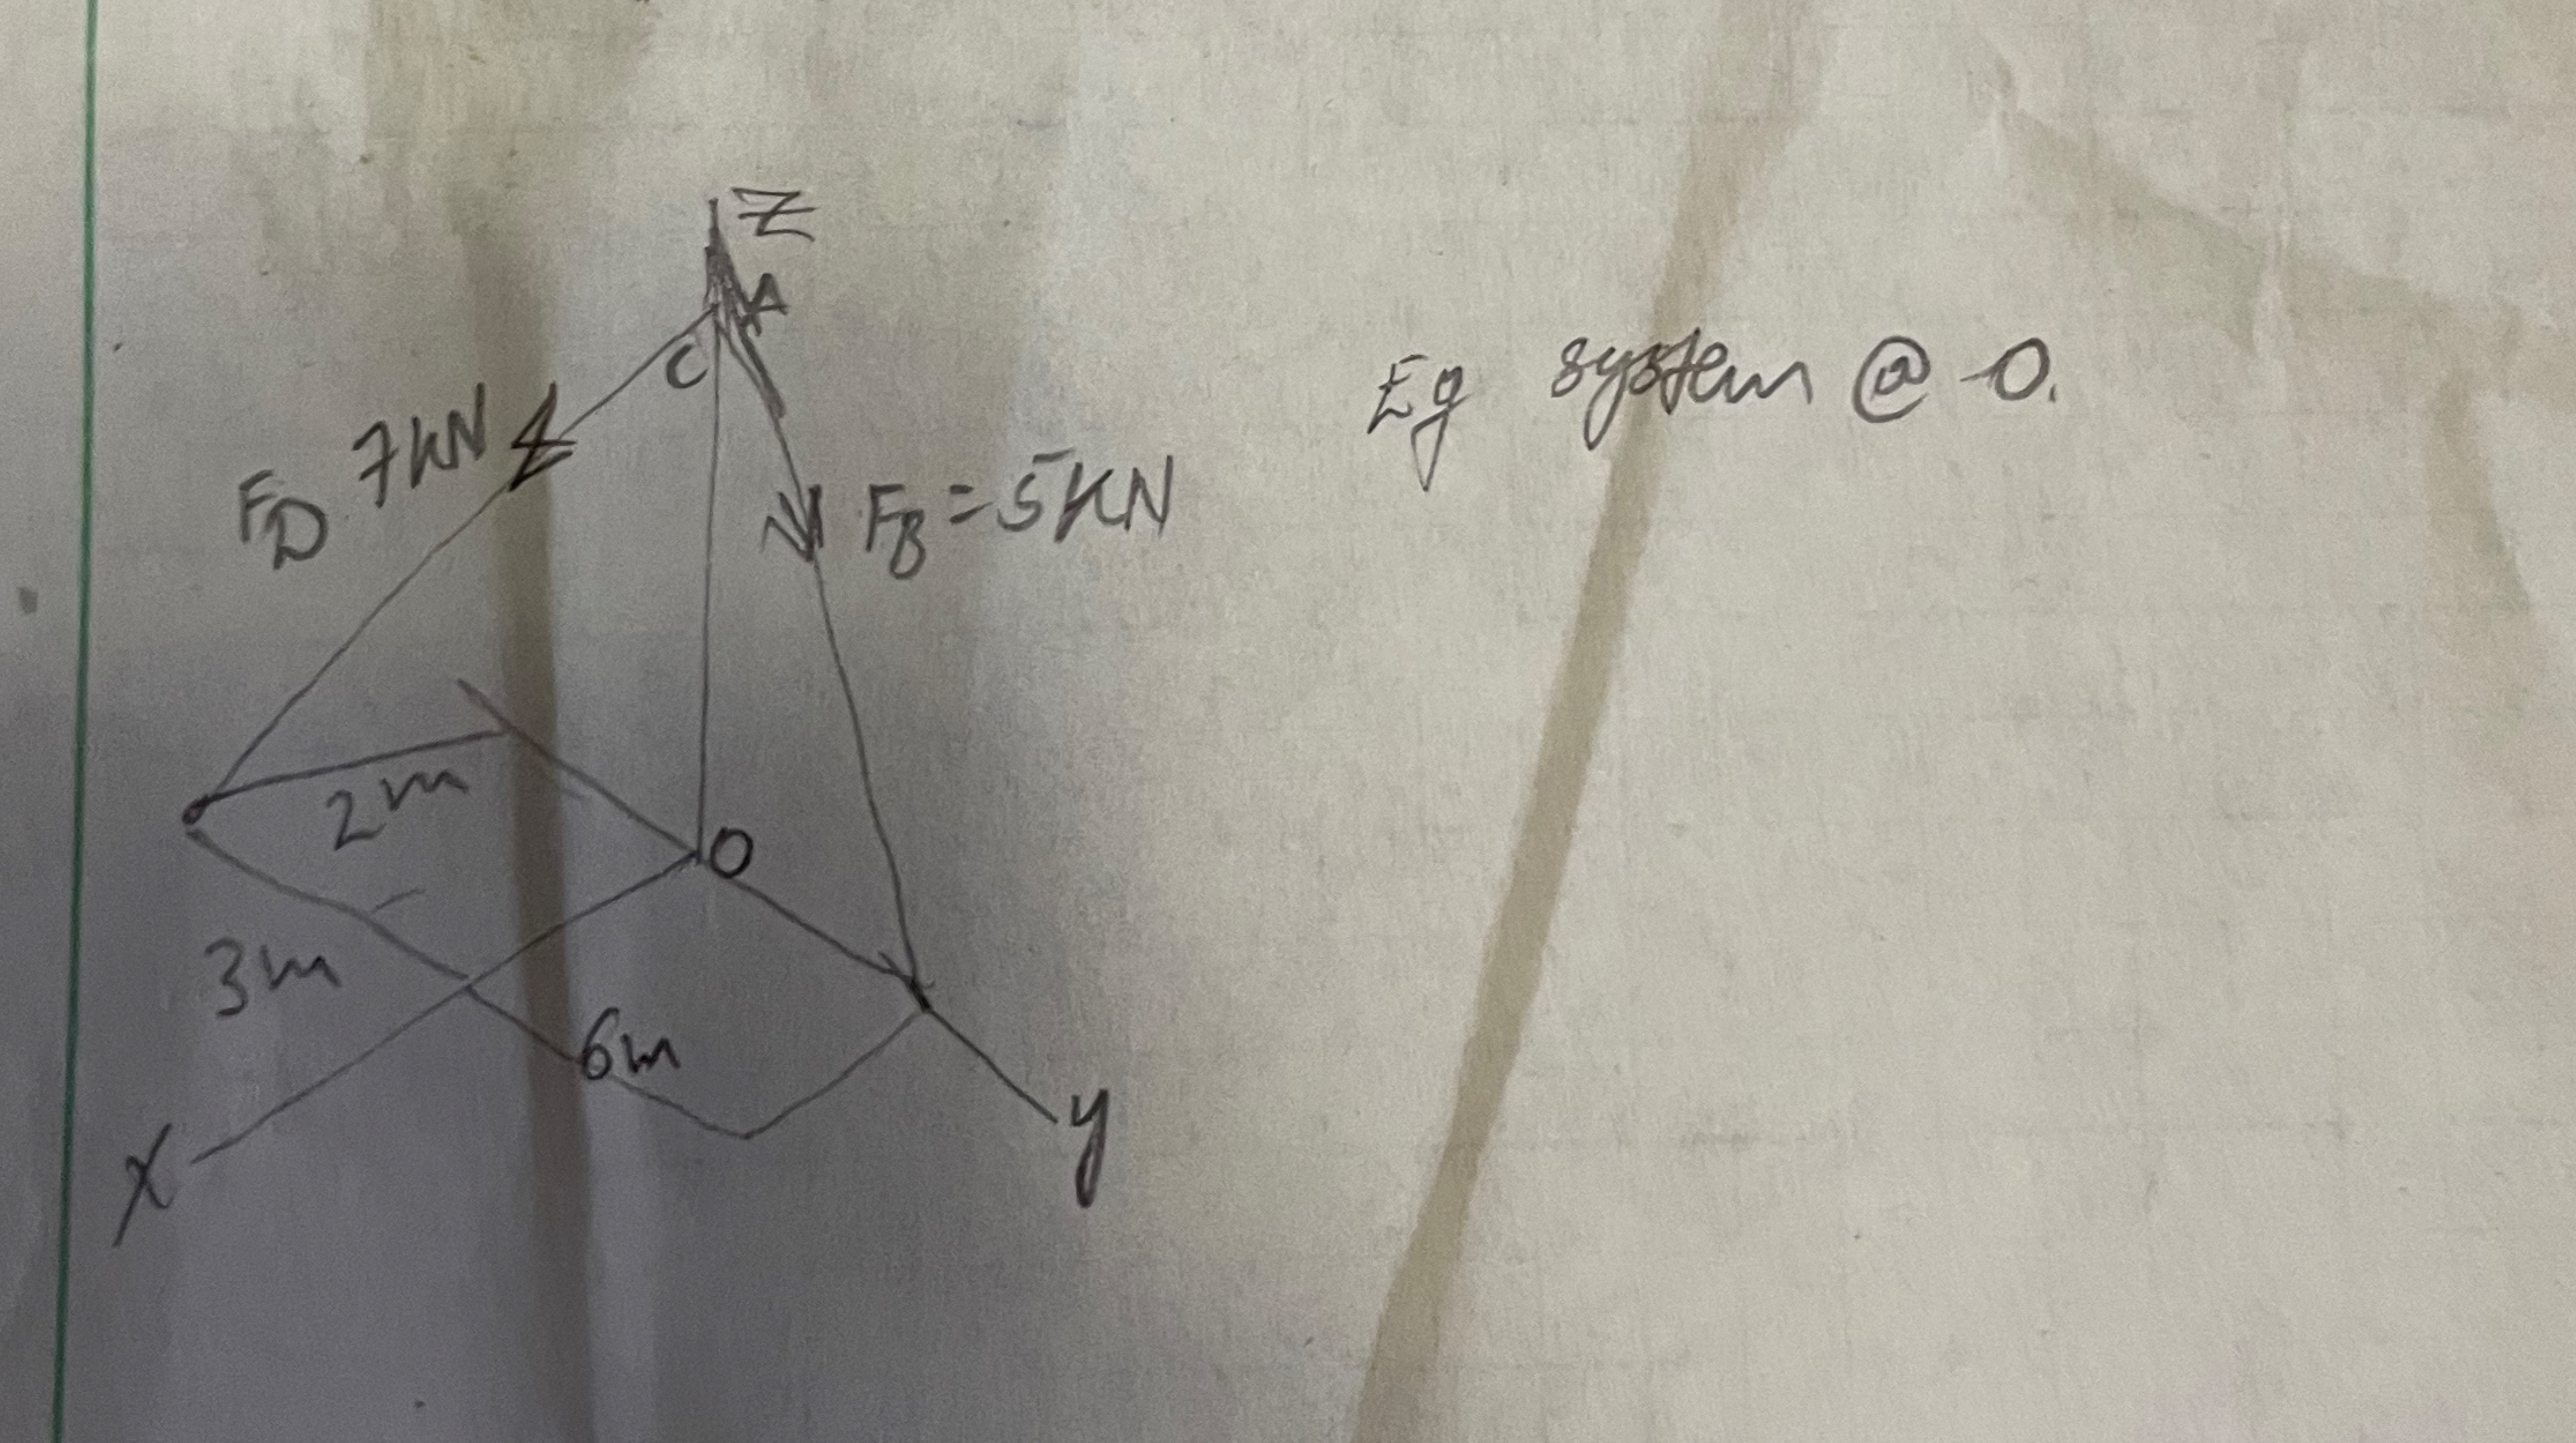 Z
A
C
Eg system @ O.
F_D 7kN
F_B = 5KN
2m
O
3m
6m
X
y